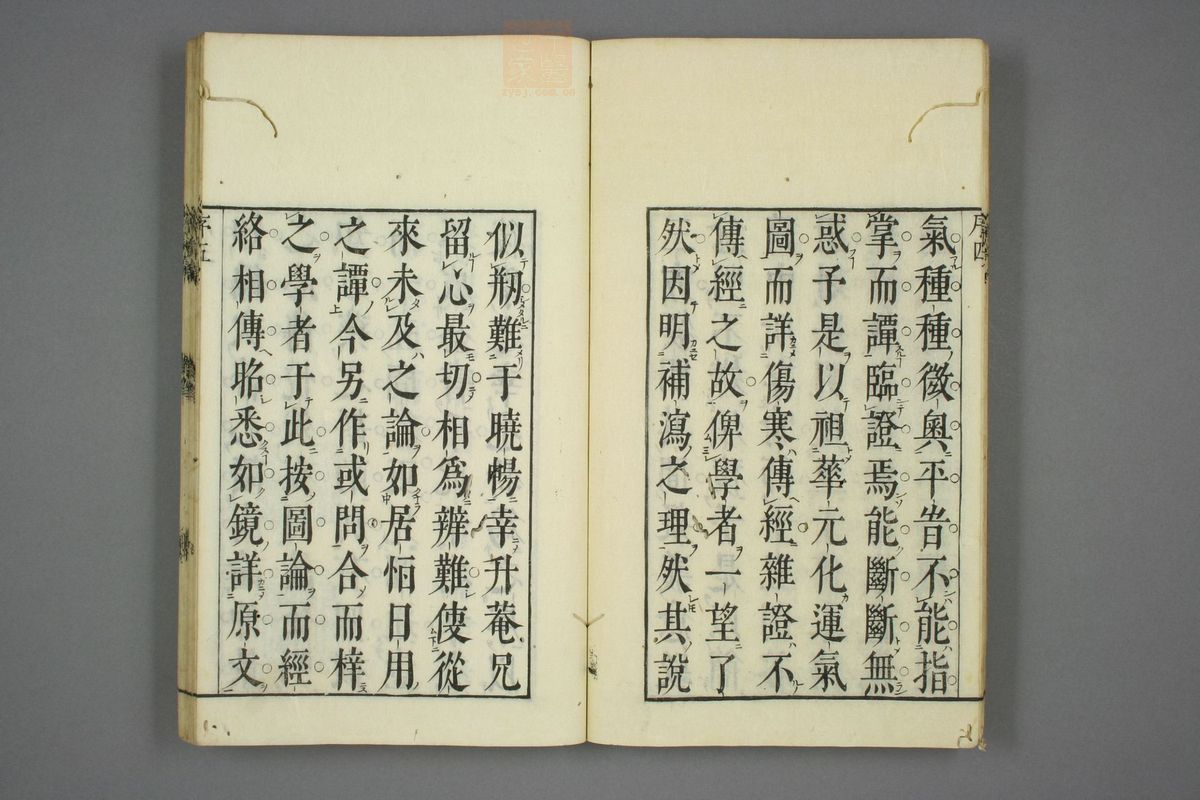 序四
氣種種徵奧平昔不能指
掌而譚臨證焉能斷斷無
惑予是以祖華元化運氣
圖而詳傷寒傳經雜證不
傳經之故俾學者一望了
然因明補瀉之理然其說
似剏難于曉暢幸升菴兄
留心最切相爲辨難傁從
來未及之論如居恒日用
之譚今另作或問合而梓
之學者于此按圖論而經
絡相傳昭悉如鏡詳原文
序五
zysj.com.cn